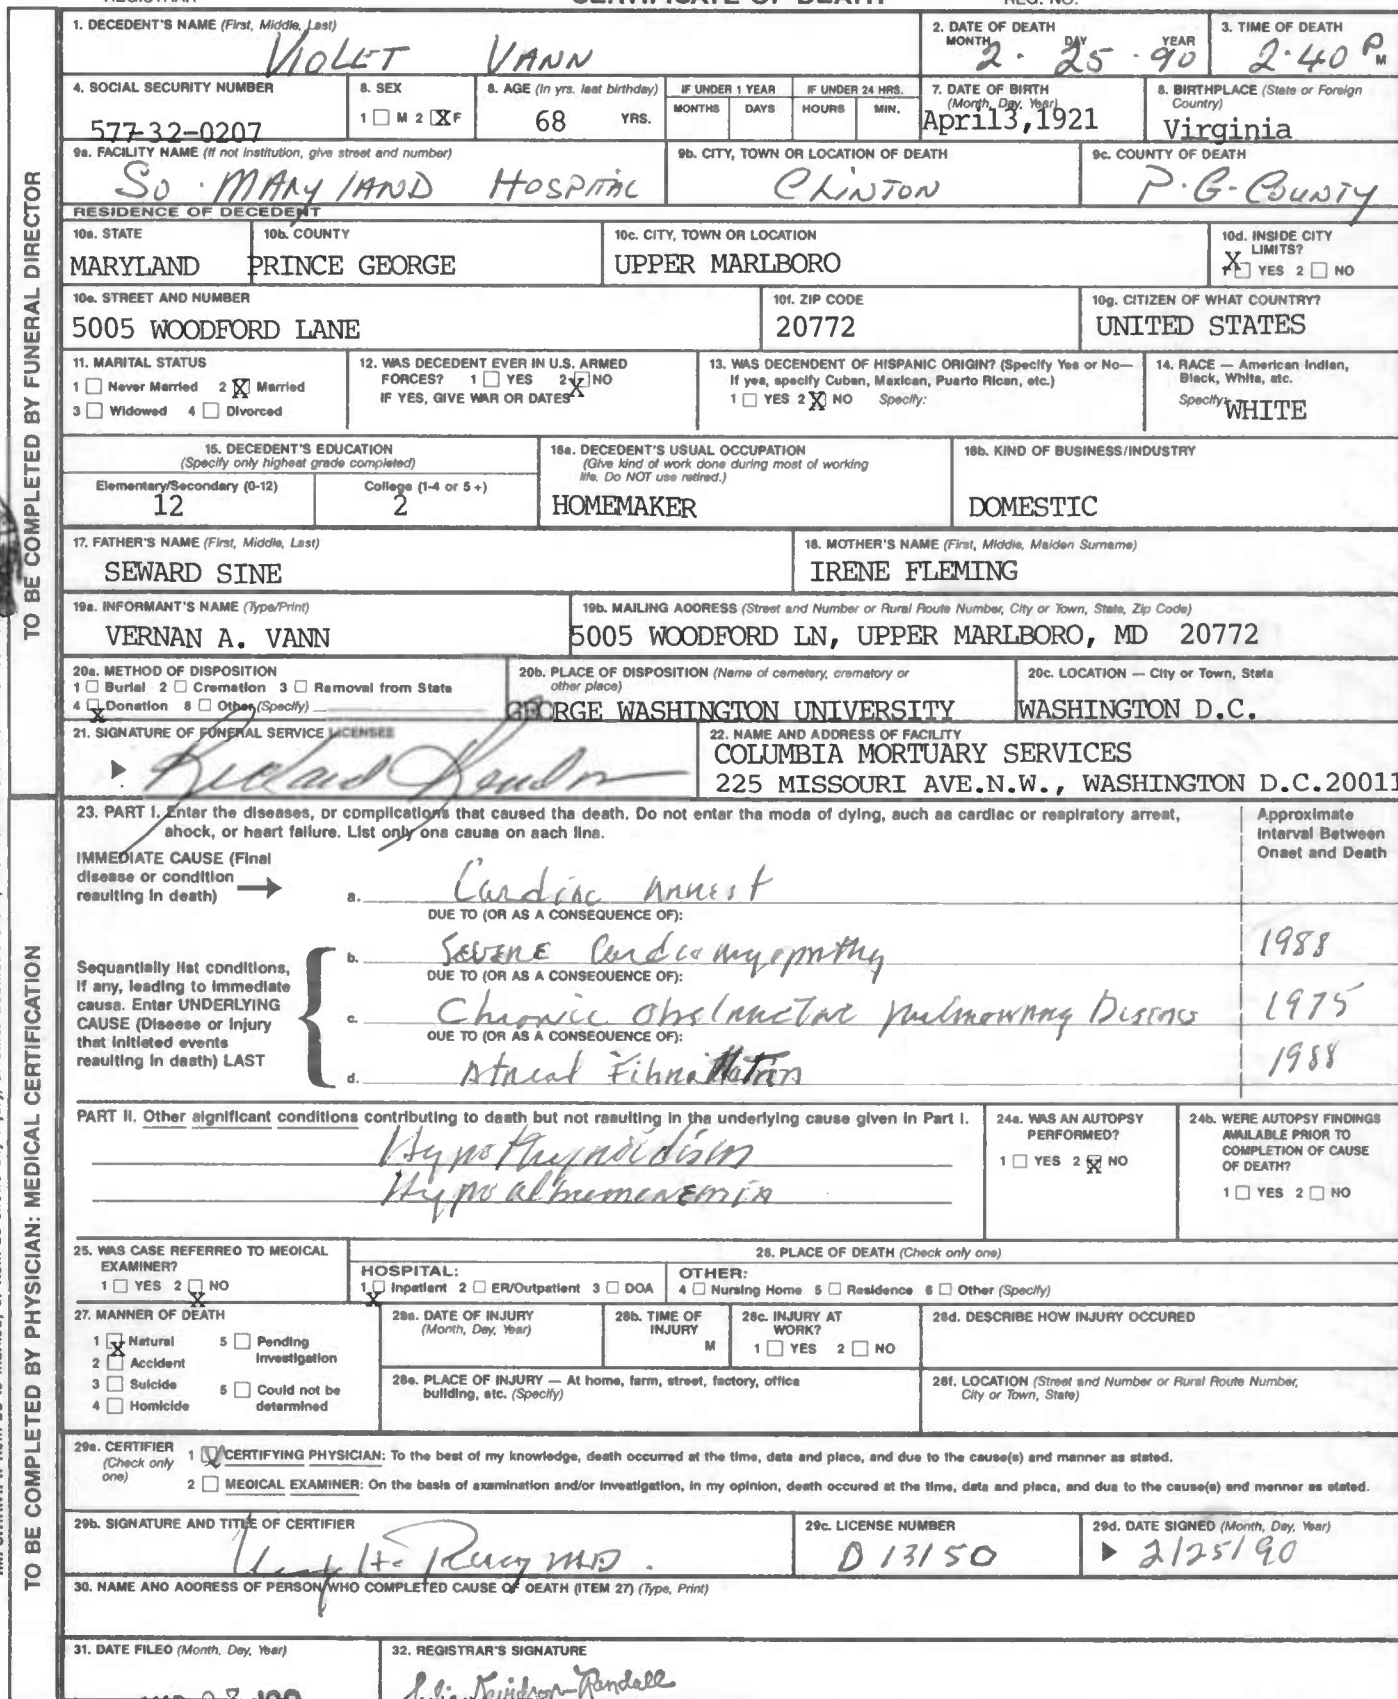 CERTIFICATE OF DEATH
1. DECEDENT'S NAME (First, Middle, Last)
VIOLET VANN
2. DATE OF DEATH
MONTH DAY YEAR
2 · 25 · 90
3. TIME OF DEATH
2:40 P M
4. SOCIAL SECURITY NUMBER
577-32-0207
8. SEX
1 M 2 X F
8. AGE (In yrs. last birthday)
68 YRS.
IF UNDER 1 YEAR
MONTHS DAYS
IF UNDER 24 HRS.
HOURS MIN.
7. DATE OF BIRTH
(Month, Day, Year)
April3,1921
8. BIRTHPLACE (State or Foreign
Country)
Virginia
9a. FACILITY NAME (If not institution, give street and number)
SO. MARYLAND HOSPITAL
9b. CITY, TOWN OR LOCATION OF DEATH
CLINTON
9c. COUNTY OF DEATH
P.G. COUNTY
RESIDENCE OF DECEDENT
10a. STATE
MARYLAND
10b. COUNTY
PRINCE GEORGE
10c. CITY, TOWN OR LOCATION
UPPER MARLBORO
10d. INSIDE CITY
LIMITS?
X YES 2 NO
10e. STREET AND NUMBER
5005 WOODFORD LANE
10f. ZIP CODE
20772
10g. CITIZEN OF WHAT COUNTRY?
UNITED STATES
11. MARITAL STATUS
1 Never Married 2 X Married
3 Widowed 4 Divorced
12. WAS DECEDENT EVER IN U.S. ARMED
FORCES? 1 YES 2 X NO
IF YES, GIVE WAR OR DATES
13. WAS DECENDENT OF HISPANIC ORIGIN? (Specify Yes or No—
If yes, specify Cuban, Mexican, Puerto Rican, etc.)
1 YES 2 X NO Specify:
14. RACE — American Indian,
Black, White, etc.
Specify: WHITE
15. DECEDENT'S EDUCATION
(Specify only highest grade completed)
Elementary/Secondary (0-12)
12
College (1-4 or 5+)
2
16a. DECEDENT'S USUAL OCCUPATION
(Give kind of work done during most of working
life. Do NOT use retired.)
HOMEMAKER
16b. KIND OF BUSINESS/INDUSTRY
DOMESTIC
17. FATHER'S NAME (First, Middle, Last)
SEWARD SINE
18. MOTHER'S NAME (First, Middle, Maiden Surname)
IRENE FLEMING
19a. INFORMANT'S NAME (Type/Print)
VERNAN A. VANN
19b. MAILING ADDRESS (Street and Number or Rural Route Number, City or Town, State, Zip Code)
5005 WOODFORD LN, UPPER MARLBORO, MD 20772
20a. METHOD OF DISPOSITION
1 Burial 2 Cremation 3 Removal from State
4 X Donation 8 Other (Specify)
20b. PLACE OF DISPOSITION (Name of cemetary, crematory or
other place)
GEORGE WASHINGTON UNIVERSITY
20c. LOCATION — City or Town, State
WASHINGTON D.C.
21. SIGNATURE OF FUNERAL SERVICE LICENSEE
22. NAME AND ADDRESS OF FACILITY
COLUMBIA MORTUARY SERVICES
225 MISSOURI AVE.N.W., WASHINGTON D.C.20011
TO BE COMPLETED BY FUNERAL DIRECTOR
23. PART I. Enter the diseases, or complications that caused the death. Do not enter the mode of dying, such as cardiac or respiratory arrest,
shock, or heart failure. List only one cause on each line.
Approximate
Interval Between
Onset and Death
IMMEDIATE CAUSE (Final
disease or condition
resulting in death)
a. Cardiac Arrest
DUE TO (OR AS A CONSEQUENCE OF):
b. Severe Cardiomyopathy 1988
DUE TO (OR AS A CONSEQUENCE OF):
c. Chronic Obstructive Pulmonary Disease 1975
DUE TO (OR AS A CONSEQUENCE OF):
d. Atrial Fibrillation 1988
Sequentially list conditions,
if any, leading to immediate
cause. Enter UNDERLYING
CAUSE (Disease or injury
that initiated events
resulting in death) LAST
PART II. Other significant conditions contributing to death but not resulting in the underlying cause given in Part I.
Hypothyroidism
Hypoalbumenemia
24a. WAS AN AUTOPSY
PERFORMED?
1 YES 2 X NO
24b. WERE AUTOPSY FINDINGS
AVAILABLE PRIOR TO
COMPLETION OF CAUSE
OF DEATH?
1 YES 2 NO
25. WAS CASE REFERRED TO MEDICAL
EXAMINER?
1 YES 2 X NO
26. PLACE OF DEATH (Check only one)
HOSPITAL:
1 X Inpatient 2 ER/Outpatient 3 DOA
OTHER:
4 Nursing Home 5 Residence 6 Other (Specify)
27. MANNER OF DEATH
1 X Natural 5 Pending
Investigation
2 Accident
3 Suicide 5 Could not be
determined
4 Homicide
28a. DATE OF INJURY
(Month, Day, Year)
28b. TIME OF
INJURY
M
28c. INJURY AT
WORK?
1 YES 2 NO
28d. DESCRIBE HOW INJURY OCCURED
28e. PLACE OF INJURY — At home, farm, street, factory, office
building, etc. (Specify)
28f. LOCATION (Street and Number or Rural Route Number,
City or Town, State)
29a. CERTIFIER
(Check only
one)
1 CERTIFYING PHYSICIAN: To the best of my knowledge, death occurred at the time, date and place, and due to the cause(s) and manner as stated.
2 MEDICAL EXAMINER: On the basis of examination and/or investigation, in my opinion, death occured at the time, date and place, and due to the cause(s) and manner as stated.
29b. SIGNATURE AND TITLE OF CERTIFIER
MD.
29c. LICENSE NUMBER
D 13150
29d. DATE SIGNED (Month, Day, Year)
2/25/90
30. NAME AND ADDRESS OF PERSON WHO COMPLETED CAUSE OF DEATH (ITEM 27) (Type, Print)
31. DATE FILED (Month, Day, Year)
32. REGISTRAR'S SIGNATURE
Julia Davidson-Randall
TO BE COMPLETED BY PHYSICIAN: MEDICAL CERTIFICATION